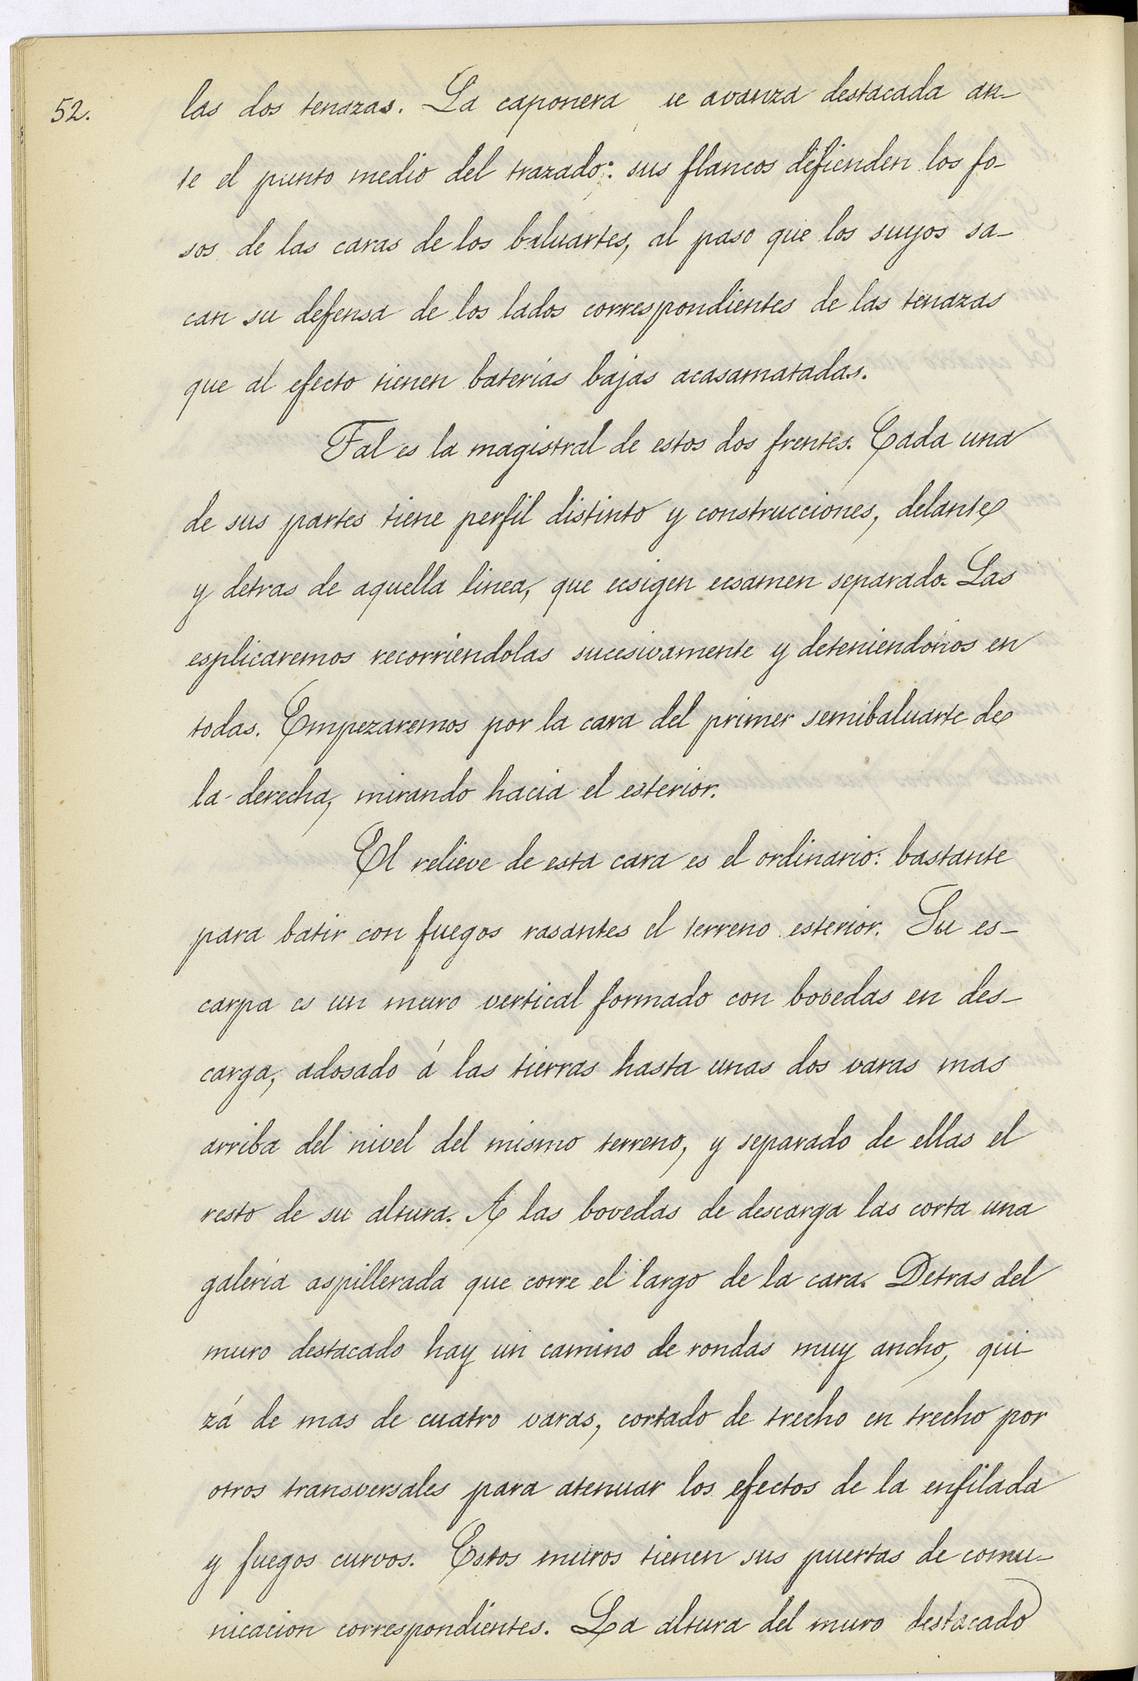 52.
las dos tenazas. La caponera se avanza destacada an-
te el punto medio del trazado: sus flancos defienden los fo-
sos de las caras de los baluartes, al paso que los suyos sa-
can su defensa de los lados correspondientes de las tenazas
que al efecto tienen baterias bajas acasamatadas.
Tal es la magistral de estos dos frentes. Cada una
de sus partes tiene perfil distinto y construcciones, delante
y detras de aquella linea, que ecsigen ecsamen separado. Las
esplicaremos recorriendolas sucesivamente y deteniendonos en
todas. Empezaremos por la cara del primer semibaluarte de
la derecha, mirando hacia el esterior.
El relieve de esta cara es el ordinario: bastante
para batir con fuegos rasantes el terreno esterior. Su es-
carpa es un muro vertical formado con bovedas en des-
carga, adosado á las tierras hasta unas dos varas mas
arriba del nivel del mismo terreno, y separado de ellas el
resto de su altura. A las bovedas de descarga las corta una
galeria aspillerada que corre el largo de la cara. Detras del
muro destacado hay un camino de rondas muy ancho, qui-
zá de mas de cuatro varas, cortado de trecho en trecho por
otros transversales para atenuar los efectos de la enfilada
y fuegos curvos. Estos muros tienen sus puertas de comu-
nicacion correspondientes. La altura del muro destacado